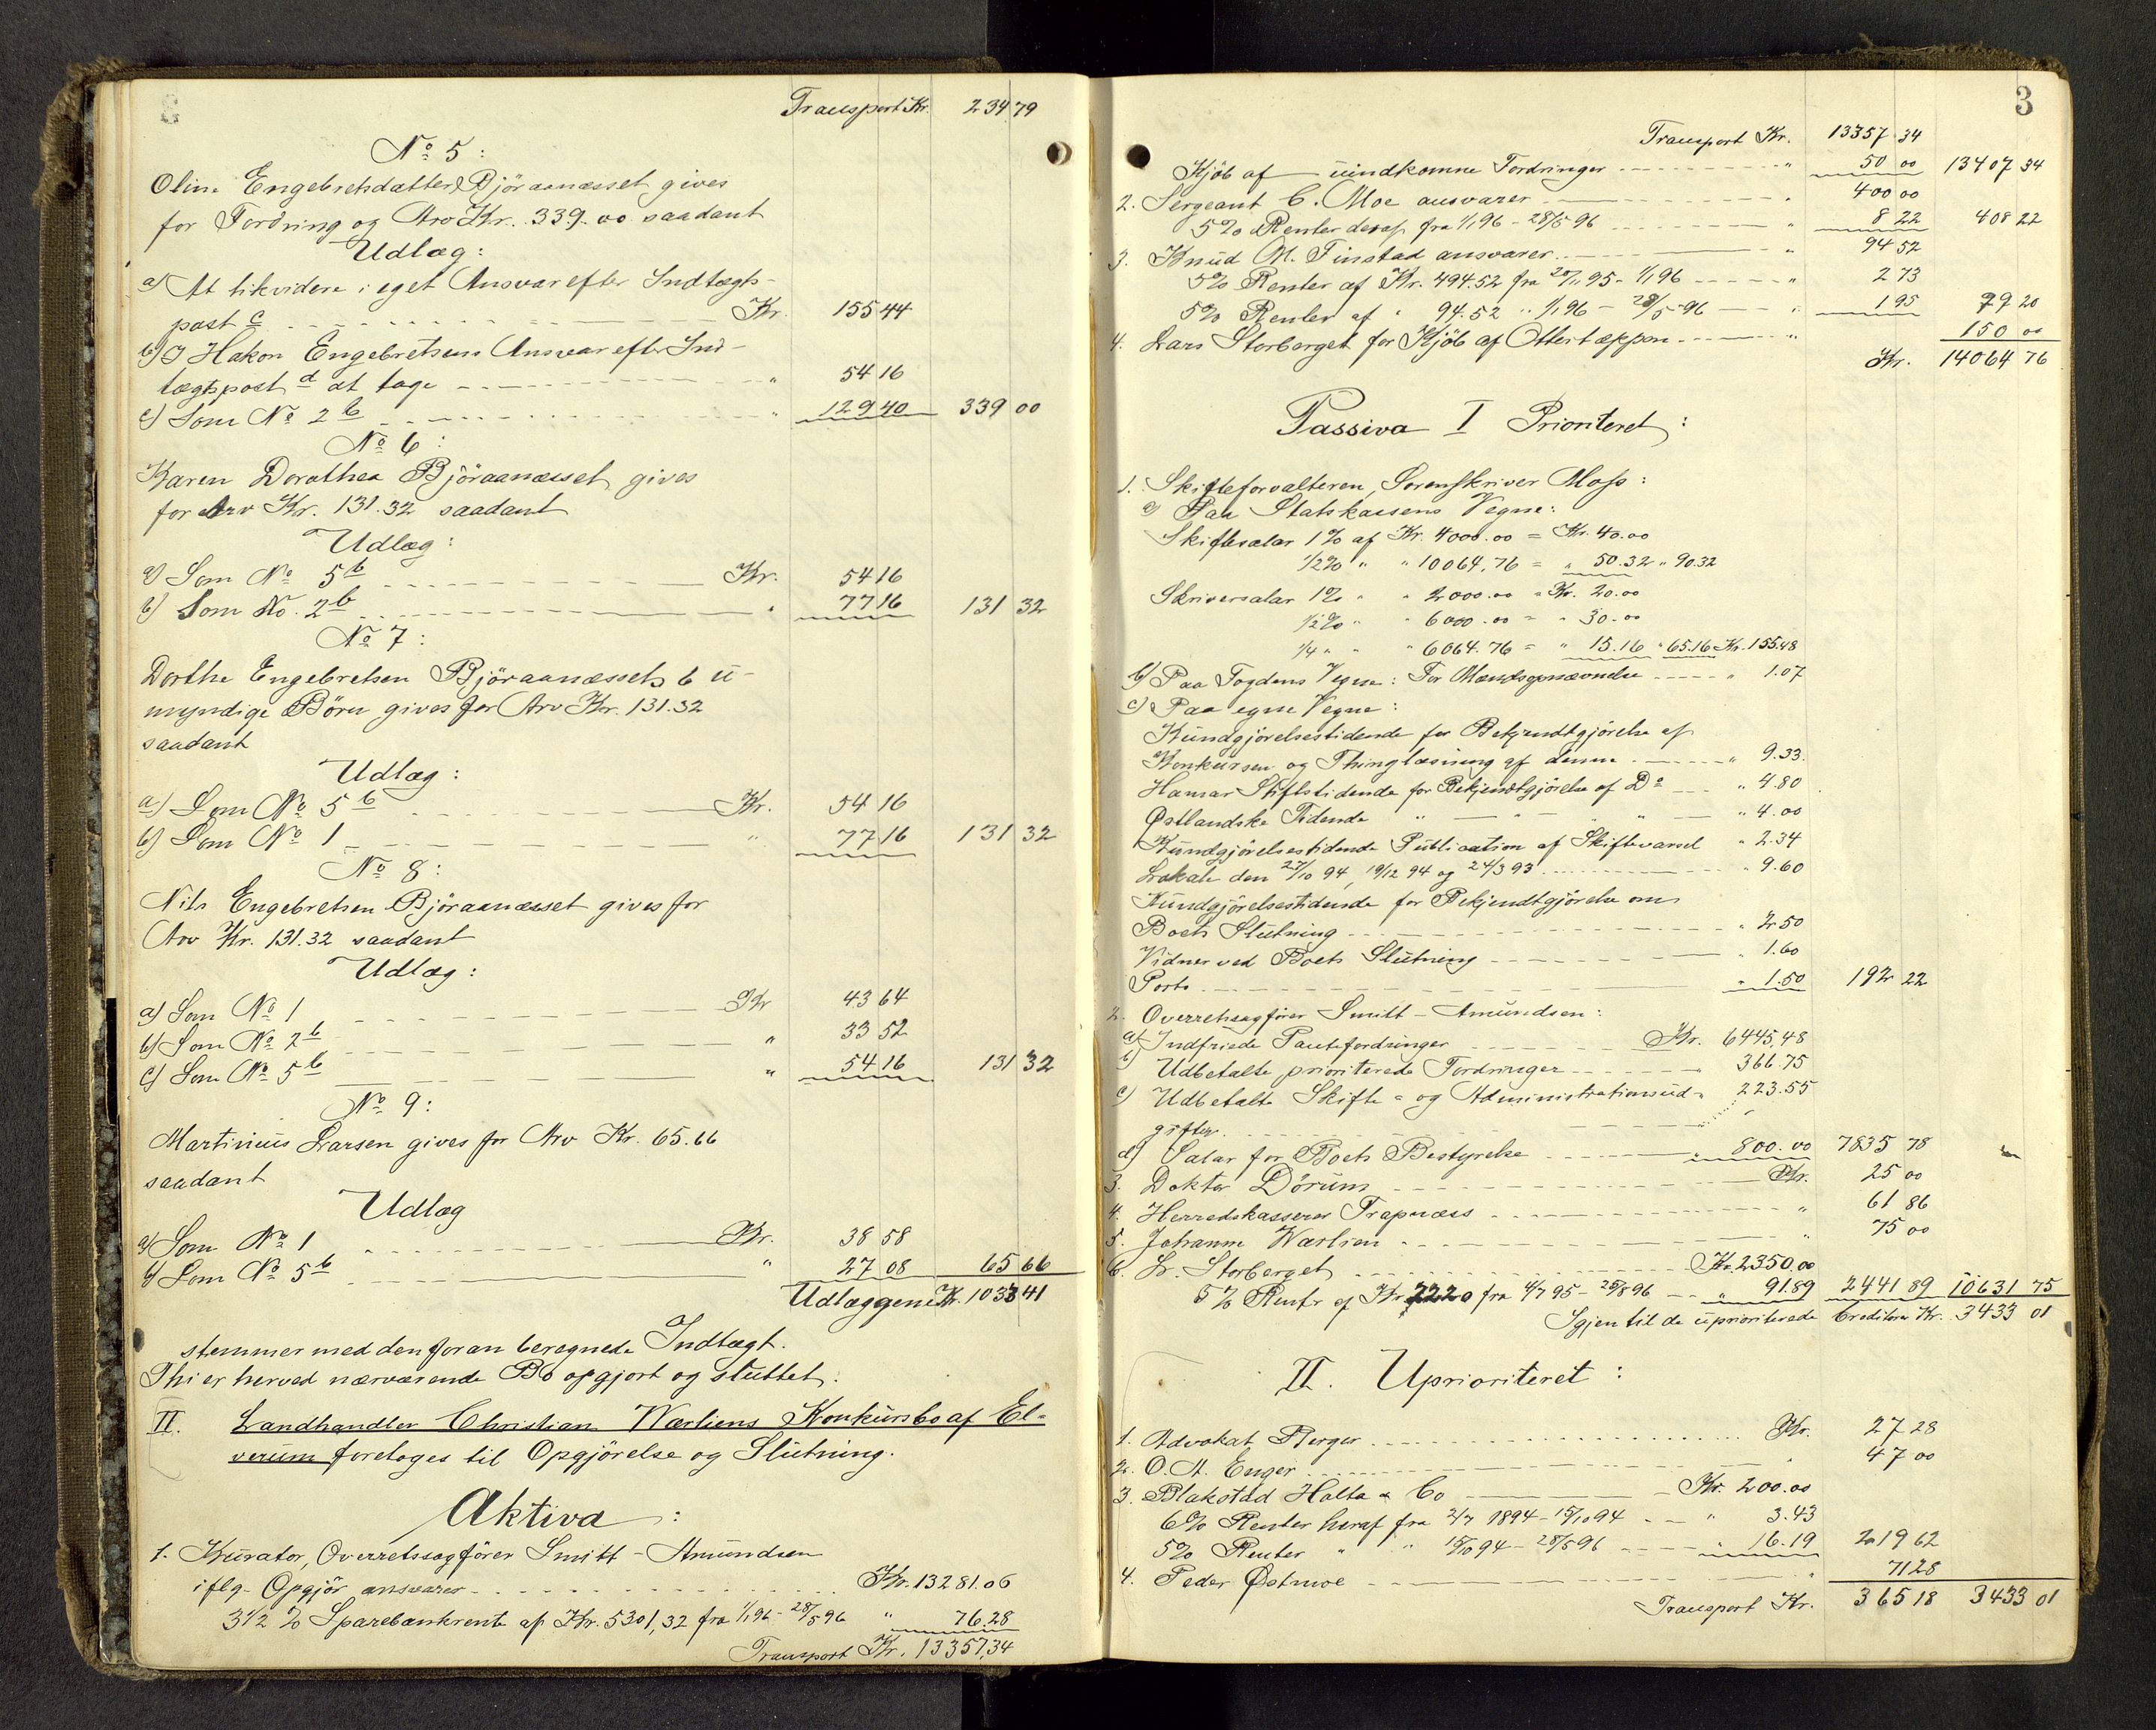 Transport Kr. 234 79
No 5:
Oline Engebretsdatter Björaanæsset gives
for Fordring og Arv Kr. 339.00 saadant
Udlæg:
a) At likvidere i eget Ansvar efter Indtægts-
post c Kr. 155 44
b) I Hakon Engebretsens Ansvar efter Ind-
tægtspost d at tage " 54 16
c) Som No 2 b " 129 40 339 00
No 6:
Karen Dorothea Björaanæsset gives
for Arv Kr. 131.32 saadant
Udlæg:
a) Som No 5 b Kr. 54 16
b) Som No. 2 b " 77 16 131 32
No 7:
Dorthe Engebretsen Björaanæssets 6 u-
myndige Börn gives for Arv Kr. 131.32
saadant
Udlæg:
a) Som No 5 b Kr. 54 16
b) Som No 1 " 77 16 131 32
No 8:
Nils Engebretsen Björaanæsset gives for
Arv Kr. 131.32 saadant
Udlæg:
a) Som No 1 Kr 43 64
b) Som No 2 b " 33 52
c) Som No 5 b " 54 16 131 32
No 9:
Martinius Larsen gives for Arv Kr. 65.66
saadant
Udlæg
a) Som No 1 Kr. 38 58
b) Som No 5 b " 27 08 65 66
Udlæggene Kr. 1033 41
stemmer med den foran beregnede Indtægt.
Thi er herved nærværende Bo opgjort og sluttet.
II. Landhandler Christian Wærliens Konkursbo af El-
verum foretoges til Opgjörelse og Slutning.
Aktiva:
1. Kurator, Overretssagförer Smitt-Amundsen
iflg. Opgjör ansvarer Kr. 13281.06
3 1/2 % Sparebankrente af Kr. 5301,32 fra 1/1 96 - 28/5 96 " 76.28
Transport Kr. 13357,34
3
Transport Kr. 13357 34
Kjöb af uindkomne Fordringer " 50 00 13407 34
2. Sergeant C. Moe ansvarer " 400 00
5% Renter deraf fra 1/1 96 - 28/5 96 " 8 22 408 22
3. Knud M. Finstad ansvarer " 94 52
5% Renter af Kr. 494.52 fra 20/11 95 - 1/1 96 " 2 73
5% Renter af " 94.52 " 1/1 96 - 28/5 96 " 1 95 99 20
4. Lars Storberget for Kjöb af Ottertæppen " 150 00
Kr. 14064 76
Passiva I Prioriteret:
1. Skifteforvalteren, Sorenskriver Moss:
a) Paa Statskassens Vegne:
Skiftesalær 1% af Kr. 4000.00 = Kr. 40.00
1/2% " " 10064.76 = " 50.32 " 90.32
Skriversalær 1% " " 2000.00 = Kr. 20.00
1/2% " " 6000.00 = " 30.00
1/4 " " " 6064.76 = " 15.16 " 65.16 Kr. 155.48
b) Paa Fogdens Vegne: For Mændsopnævnelse " 1.07
c) Paa egne Vegne:
Kundgjörelsestidende for Bekjendtgjörelse af
Konkursen og Thinglæsning af denne " 9.33
Hamar Stiftstidende for Bekjendtgjörelse af Do " 4.80
Østlandske Tidende " " " " 4.00
Kundgjörelsestidende Publication af Skiftevarsel " 2.34
Lokale den 27/10 94, 19/12 94 og 24/3 93 " 9.60
Kundgjörelsestidende for Bekjendtgjörelse om
Boets Slutning " 2.50
Vidner ved Boets Slutning " 1.60
Porto " 1.50 192 22
2. Overretssagförer Smitt-Amundsen:
a) Indfriede Pantefordringer Kr. 6445,48
b) Udbetalte prioriterede Fordringer " 366.75
c) Udbetalte Skifte- og Administrationsud- " 223.55
gifter
d) Salær for Boets Bestyrelse " 800.00 7835 78
3. Doktor Dörum Kr. 25 00
4. Herredskasserer Trapnæss " 61 86
5. Johanne Wærlien " 75 00
6. Lr. Storberget Kr. 2350.00
5% Renter af Kr. 2220 fra 4/7 95 - 28/5 96 " 91.89 2441 89 10631 75
Igjen til de uprioriterede Creditorer Kr. 3433 01
II. Uprioriteret:
1. Advokat Berger Kr. 27 28
2. O. A. Enger " 47 00
3. Blakstad Holta & Co Kr. 200.00
6% Renter heraf fra 2/7 1894 - 15/10 94 " 3.43
5% Renter " " 15/10 94 - 28/5 96 " 16.19 219 62
4. Peder Østmoe " 71 28
Transport Kr. 365 18 3433 01